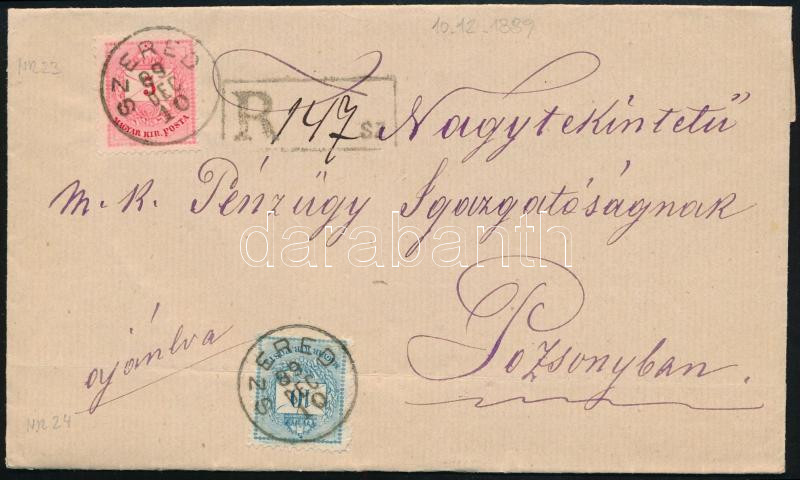 10.12.1889
NR23
SZERED
89
DEC
10
5
MAGYAR KIR. POSTA
R 147 SZ.
Nagytekintetű
m. k. Pénzügy Igazgatóságnak
darabanth
Pozsonyban.
ajánlva
SZERED
89
DEC
10
10
NR24